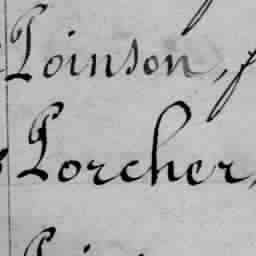 Poinson,
Porcher,